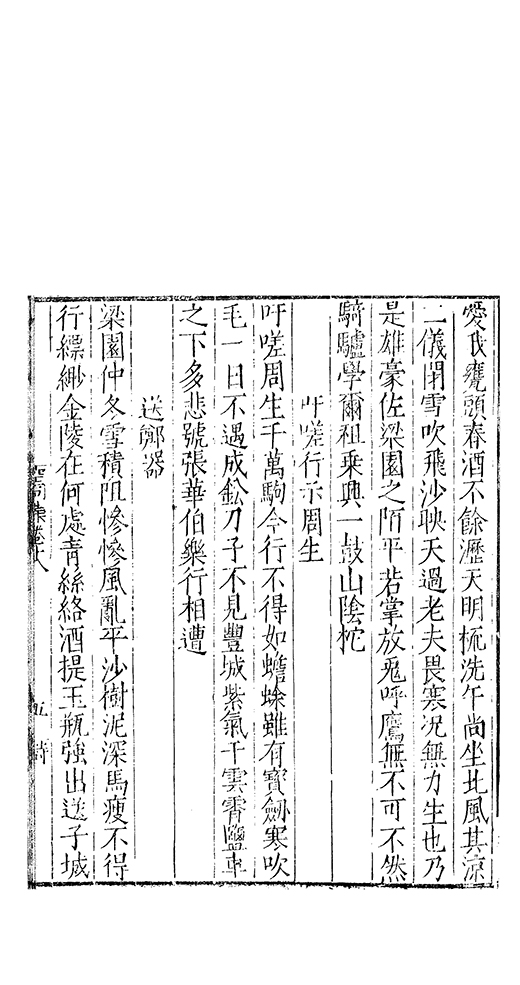 愛我甕頭春酒不餘瀝天明梳洗午尚坐北風其涼
二儀閉雪吹飛沙映天過老夫畏寒况無力生也乃
是雄豪佐梁園之陌平若掌放兎呼鷹無不可不然
騎驢學爾祖乘興一鼓山陰柁
吁嗟行示周生
吁嗟周生千萬駒今行不得如蟾蜍雖有寶劒寒吹
毛一日不遇成鈆刀子不見豐城紫氣干雲霄鹽車
之下多悲號張華伯樂行相遭
送鄭器
梁園仲冬雪積阻慘慘風亂平沙樹泥深馬瘦不得
行縹緲金陵在何處青絲絡酒提玉瓶強出送子城
集卷十八 五 詩